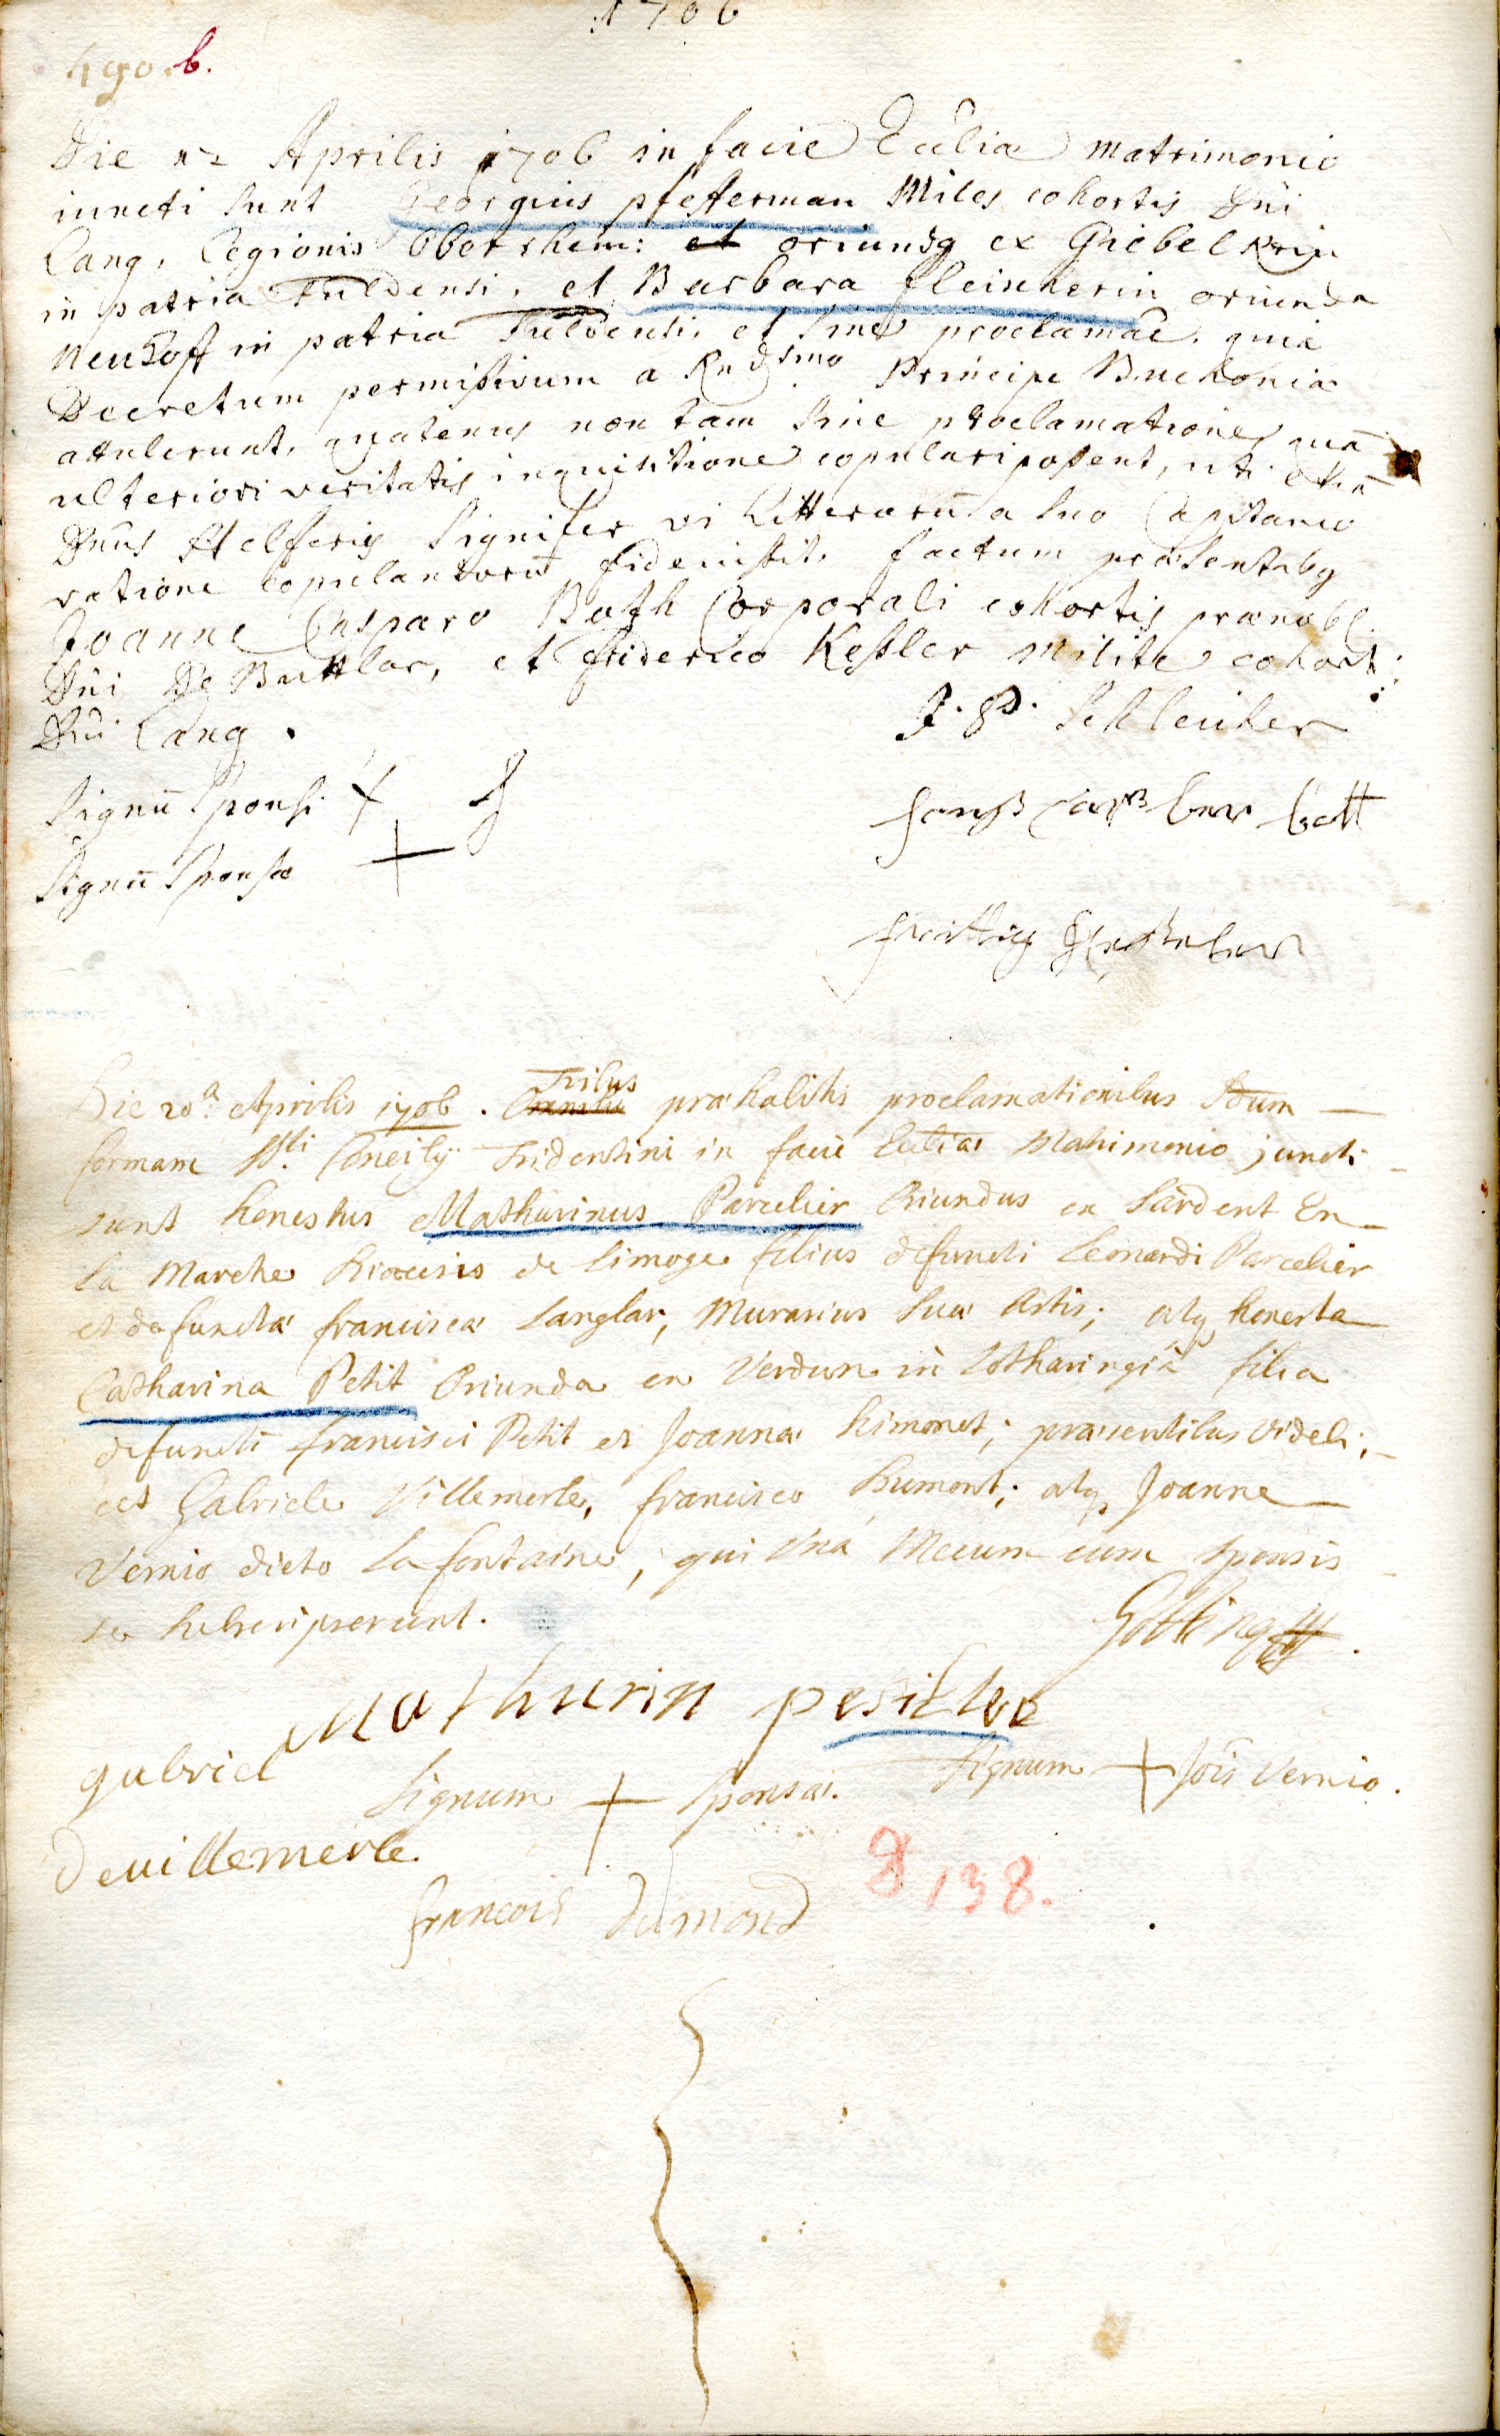 1706
490.b.
Die 12 Aprilis 1706 in facie Eccliæ matrimonio
iuncti sunt Georgius pfefferman Miles cohortis Dni
Lang, Legionis Oberrhein: et oriundg ex Giebelrein
in patria Fuldensi, et Barbara fleischerin oriunda
Neuhoff in patria Fuldensi, et sine proclamāe. quia
Decretum permissivum a Rndssimo Principe Buchoniæ
attulerunt, quatenus non tam sine proclamatione, quā
ulteriori veritatis inquisitione copulari possent, uti etiā
Dnus Helferig Signifer vi litterarū a suo Capitaneo
ratione copulandorū fidem fecit. factum præsentibg
Joanne Casparo Bath Corporali cohortis prænobl.
Dni De Buttlar, et friderico Keßler milite cohort:
Dni Lang.
J. P. Schleicher
Signū Sponsi +
Signū Sponsæ +
Die 20a Aprilis 1706. Tribus præhabitis proclamationibus Scdum
formam Sti Concilÿ Tridentini in facie Eccliæ Matrimonio juncti
sunt honestus Mathurinus Parcelier Oriundus ex Sardent En
La Marche Diœcesis de Limoge filius defuncti Leonardi Parcelier
et defunctæ franciscæ Langlar, Murarius suæ Artis; atq honesta
Catharina Petit Oriunda ex Verdun in Lotharingiâ filia
defuncti francisci Petit et Joannæ Simonet; præsentibus videli-
cet Gabriele Villemerle, francisco Dumont; atq Joanne
Vernio dicto La fontaine, qui Unà Mecum cum sponsis
se subscripserunt.
Götting
Mathurin
gabriel
Signum + sponsæ.
Signum + Jois Vernio.
Deuillemerle.
francois dumond
138.